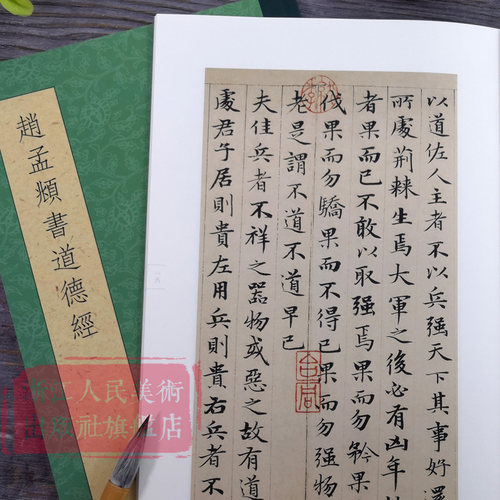 趙孟頫書道德經
以道佐人主者不以兵强天下其事好還
所處荆棘生焉大軍之後必有凶年
者果而已不敢以取强焉果而勿矜果
伐果而勿驕果而不得已果而勿强物
老是謂不道不道早已
夫佳兵者不祥之器物或惡之故有道
處君子居則貴左用兵則貴右兵者不
浙江人民美術
出版社旗艦店